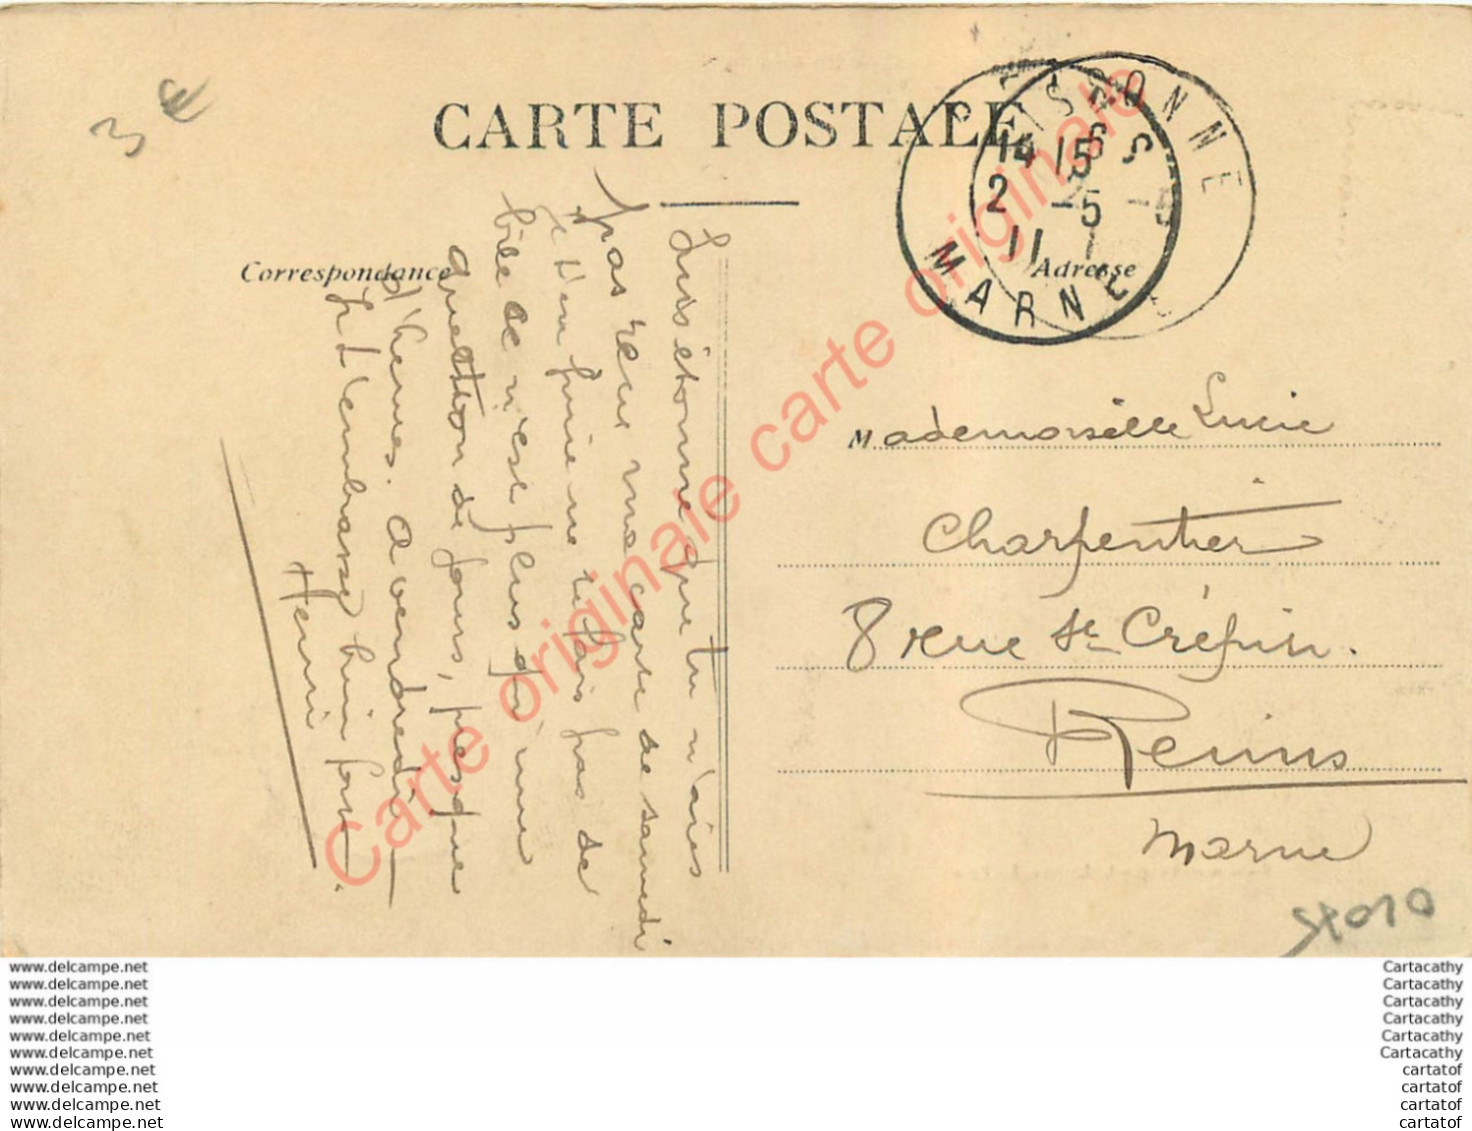 3 €
CARTE POSTALE
SISSONNE
14 15
2 -5
11
MARNE
6 S
-5
Correspondance
Adresse
Suis étonné que tu n'aies
pas reçu ma carte de samedi
Je t'en prie ne te fais pas de
bile ce n'est plus qu'une
question de jours, presque
d'heures. A vendredi
Je t'embrasse bien fort.
Henri
Mademoiselle Lucie
Charpentier
8 rue St Crépin.
Reims
Marne
Carte originale carte originale carte originale
www.delcampe.net
www.delcampe.net
www.delcampe.net
www.delcampe.net
www.delcampe.net
www.delcampe.net
www.delcampe.net
www.delcampe.net
www.delcampe.net
www.delcampe.net
Cartacathy
Cartacathy
Cartacathy
Cartacathy
Cartacathy
Cartacathy
cartatof
cartatof
cartatof
cartatof